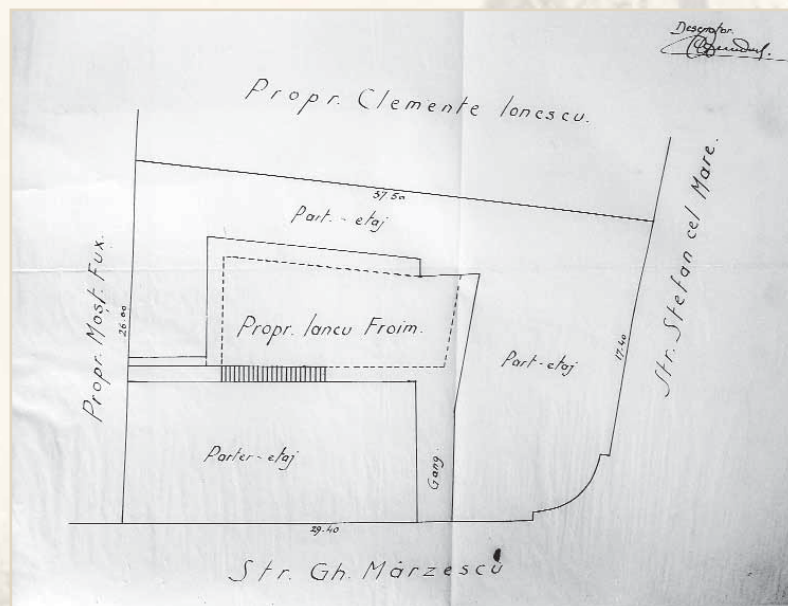 Desenator.
Propr. Clemente Ionescu.
37.50
Part.-etaj
Propr. Moșt. Fux.
26.60
Propr. Iancu Froim.
Part-etaj
17.40
Str. Stefan cel Mare.
Parter-etaj
Gang.
29.40
Str. Gh. Mârzescu